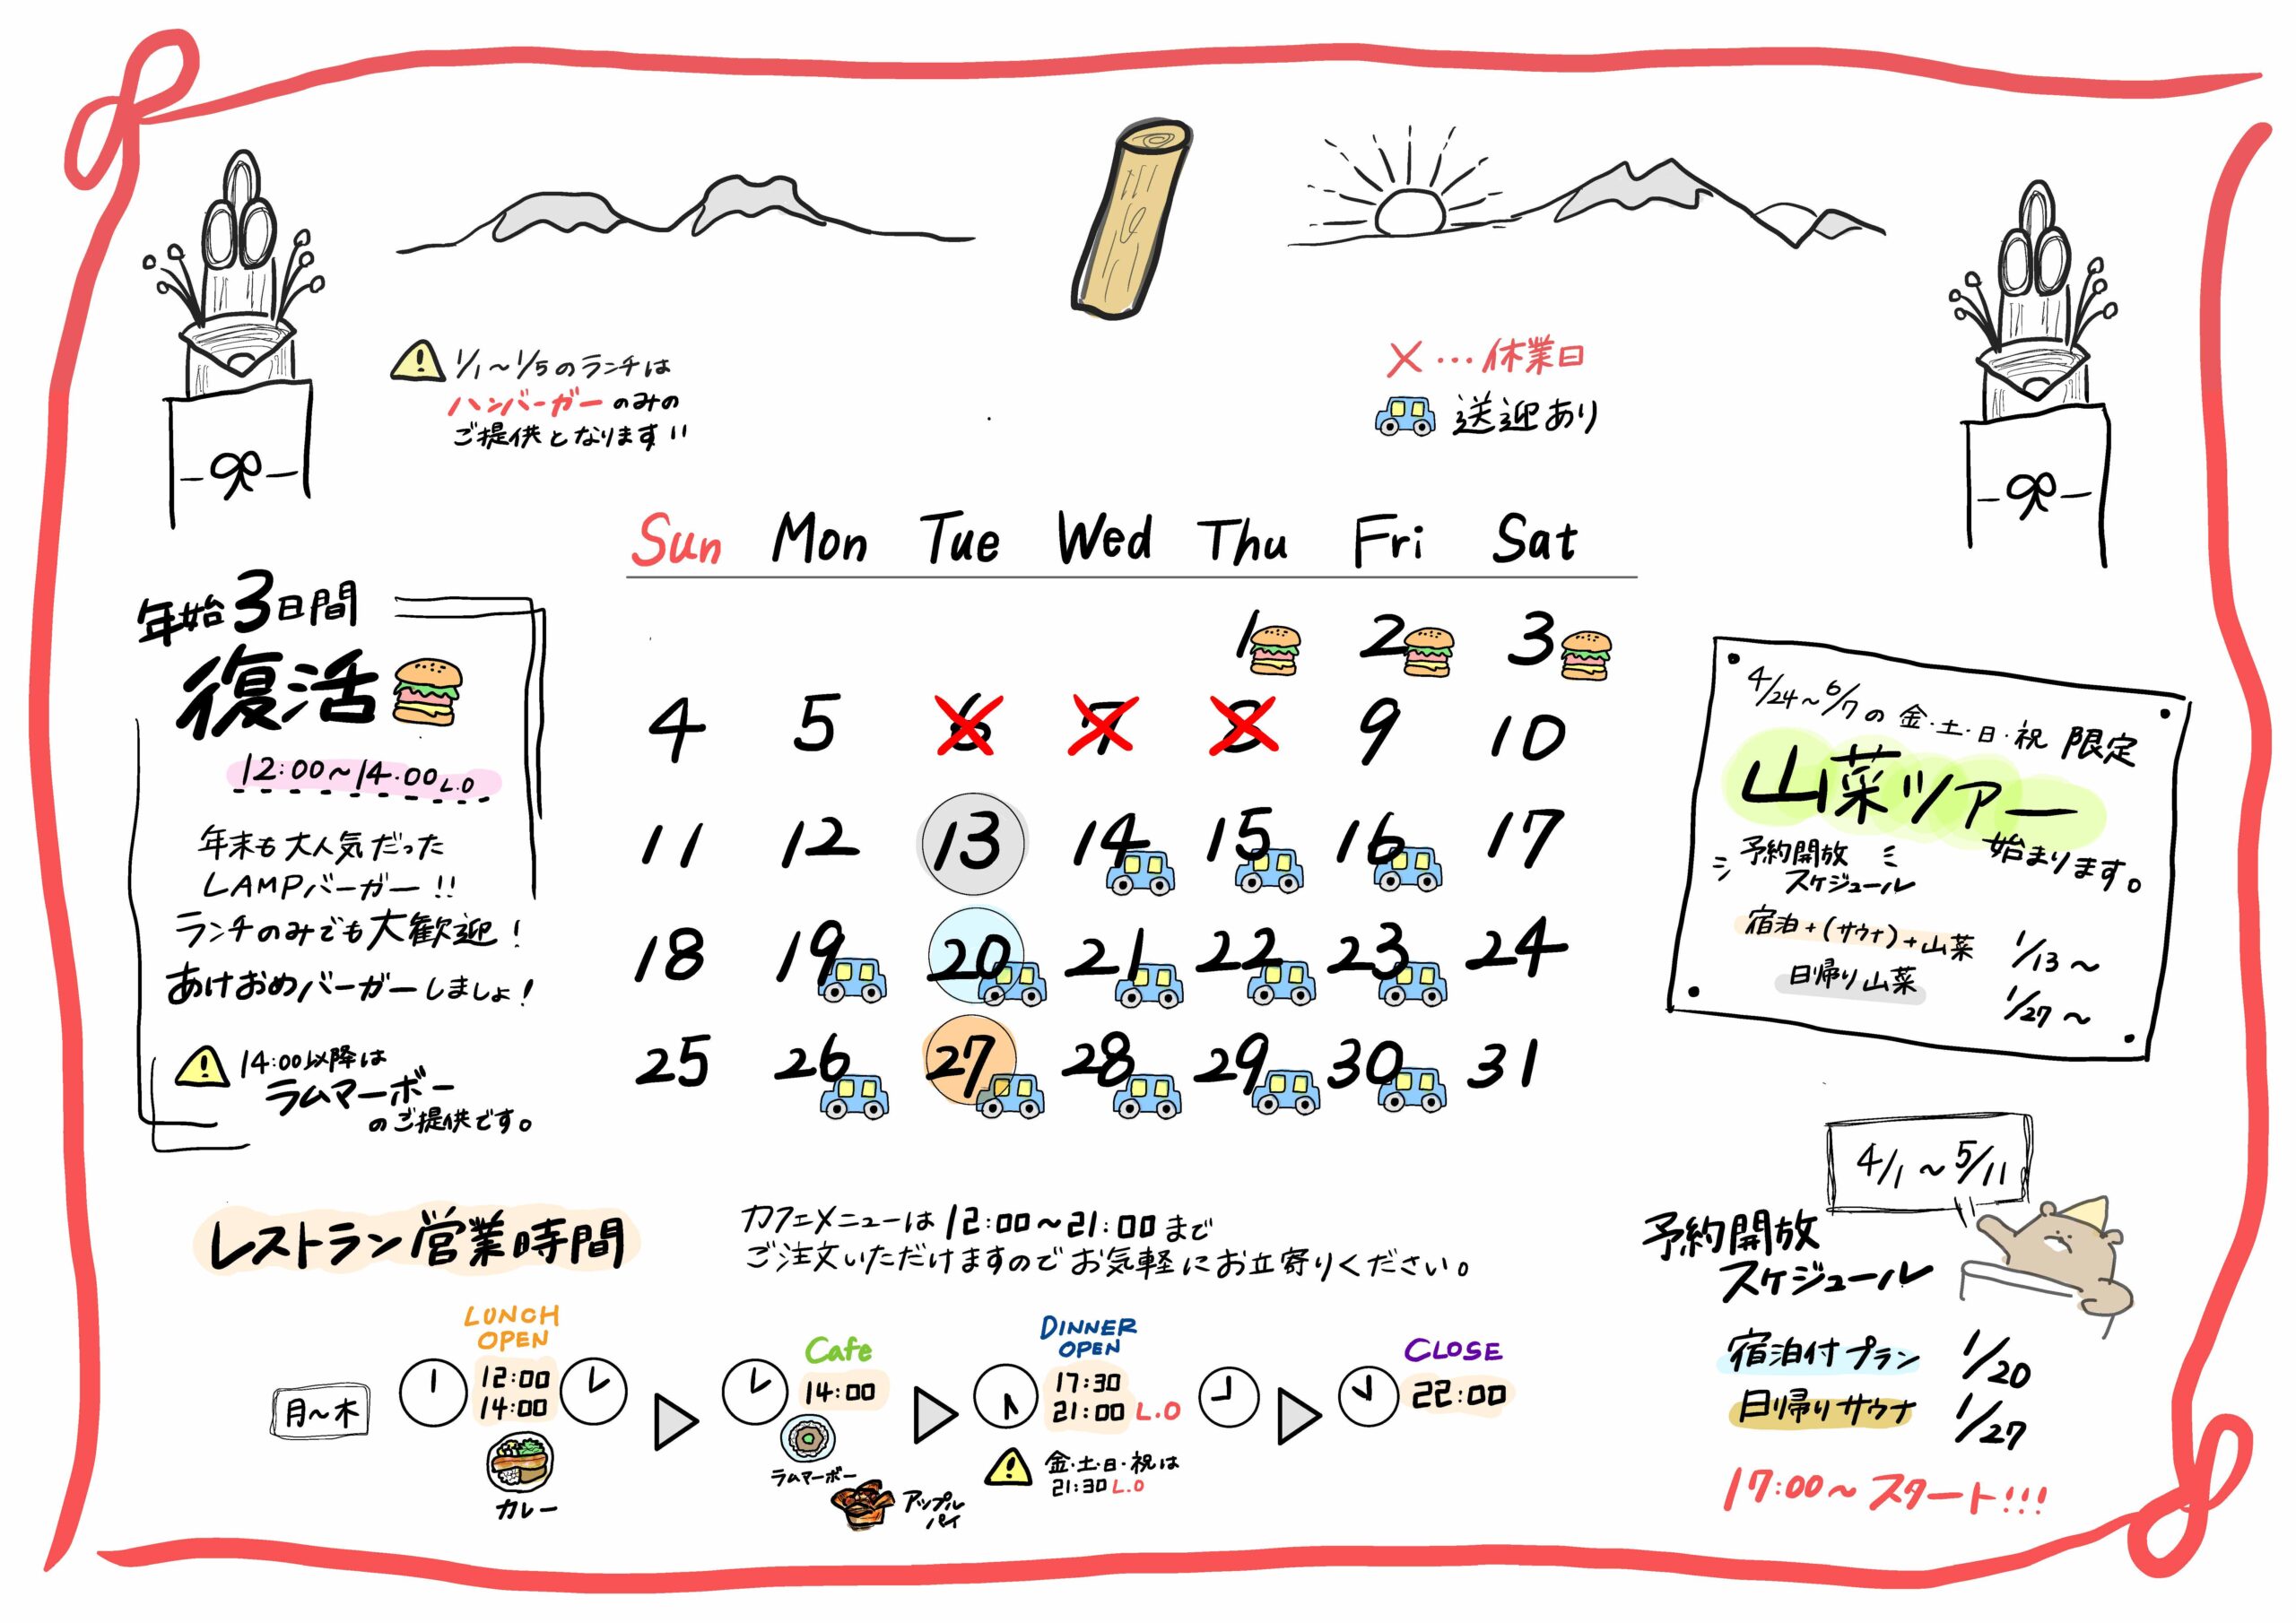 1/1～1/5のランチは
ハンバーガーのみの
ご提供となります!!
×…休業日
送迎あり
年始3日間
復活
12:00～14:00 L.O
年末も大人気だった
LAMPバーガー!!
ランチのみでも大歓迎!
あけおめバーガーしましょ!
14:00以降は
ラムマーボー
のご提供です。
Sun Mon Tue Wed Thu Fri Sat
1 2 3
4 5 6 7 8 9 10
11 12 13 14 15 16 17
18 19 20 21 22 23 24
25 26 27 28 29 30 31
4/24～6/7の金・土・日・祝限定
山菜ツアー
始まります。
予約開放
スケジュール
宿泊+(サウナ)+山菜 1/13～
日帰り山菜 1/27～
レストラン営業時間
カフェメニューは12:00～21:00まで
ご注文いただけますのでお気軽にお立寄りください。
月～木
LUNCH
OPEN
12:00
14:00
カレー
Cafe
14:00
ラムマーボー
アップル
パイ
DINNER
OPEN
17:30
21:00 L.O
金・土・日・祝は
21:30 L.O
CLOSE
22:00
4/1～5/11
予約開放
スケジュール
宿泊付プラン 1/20
日帰りサウナ 1/27
17:00～スタート!!!